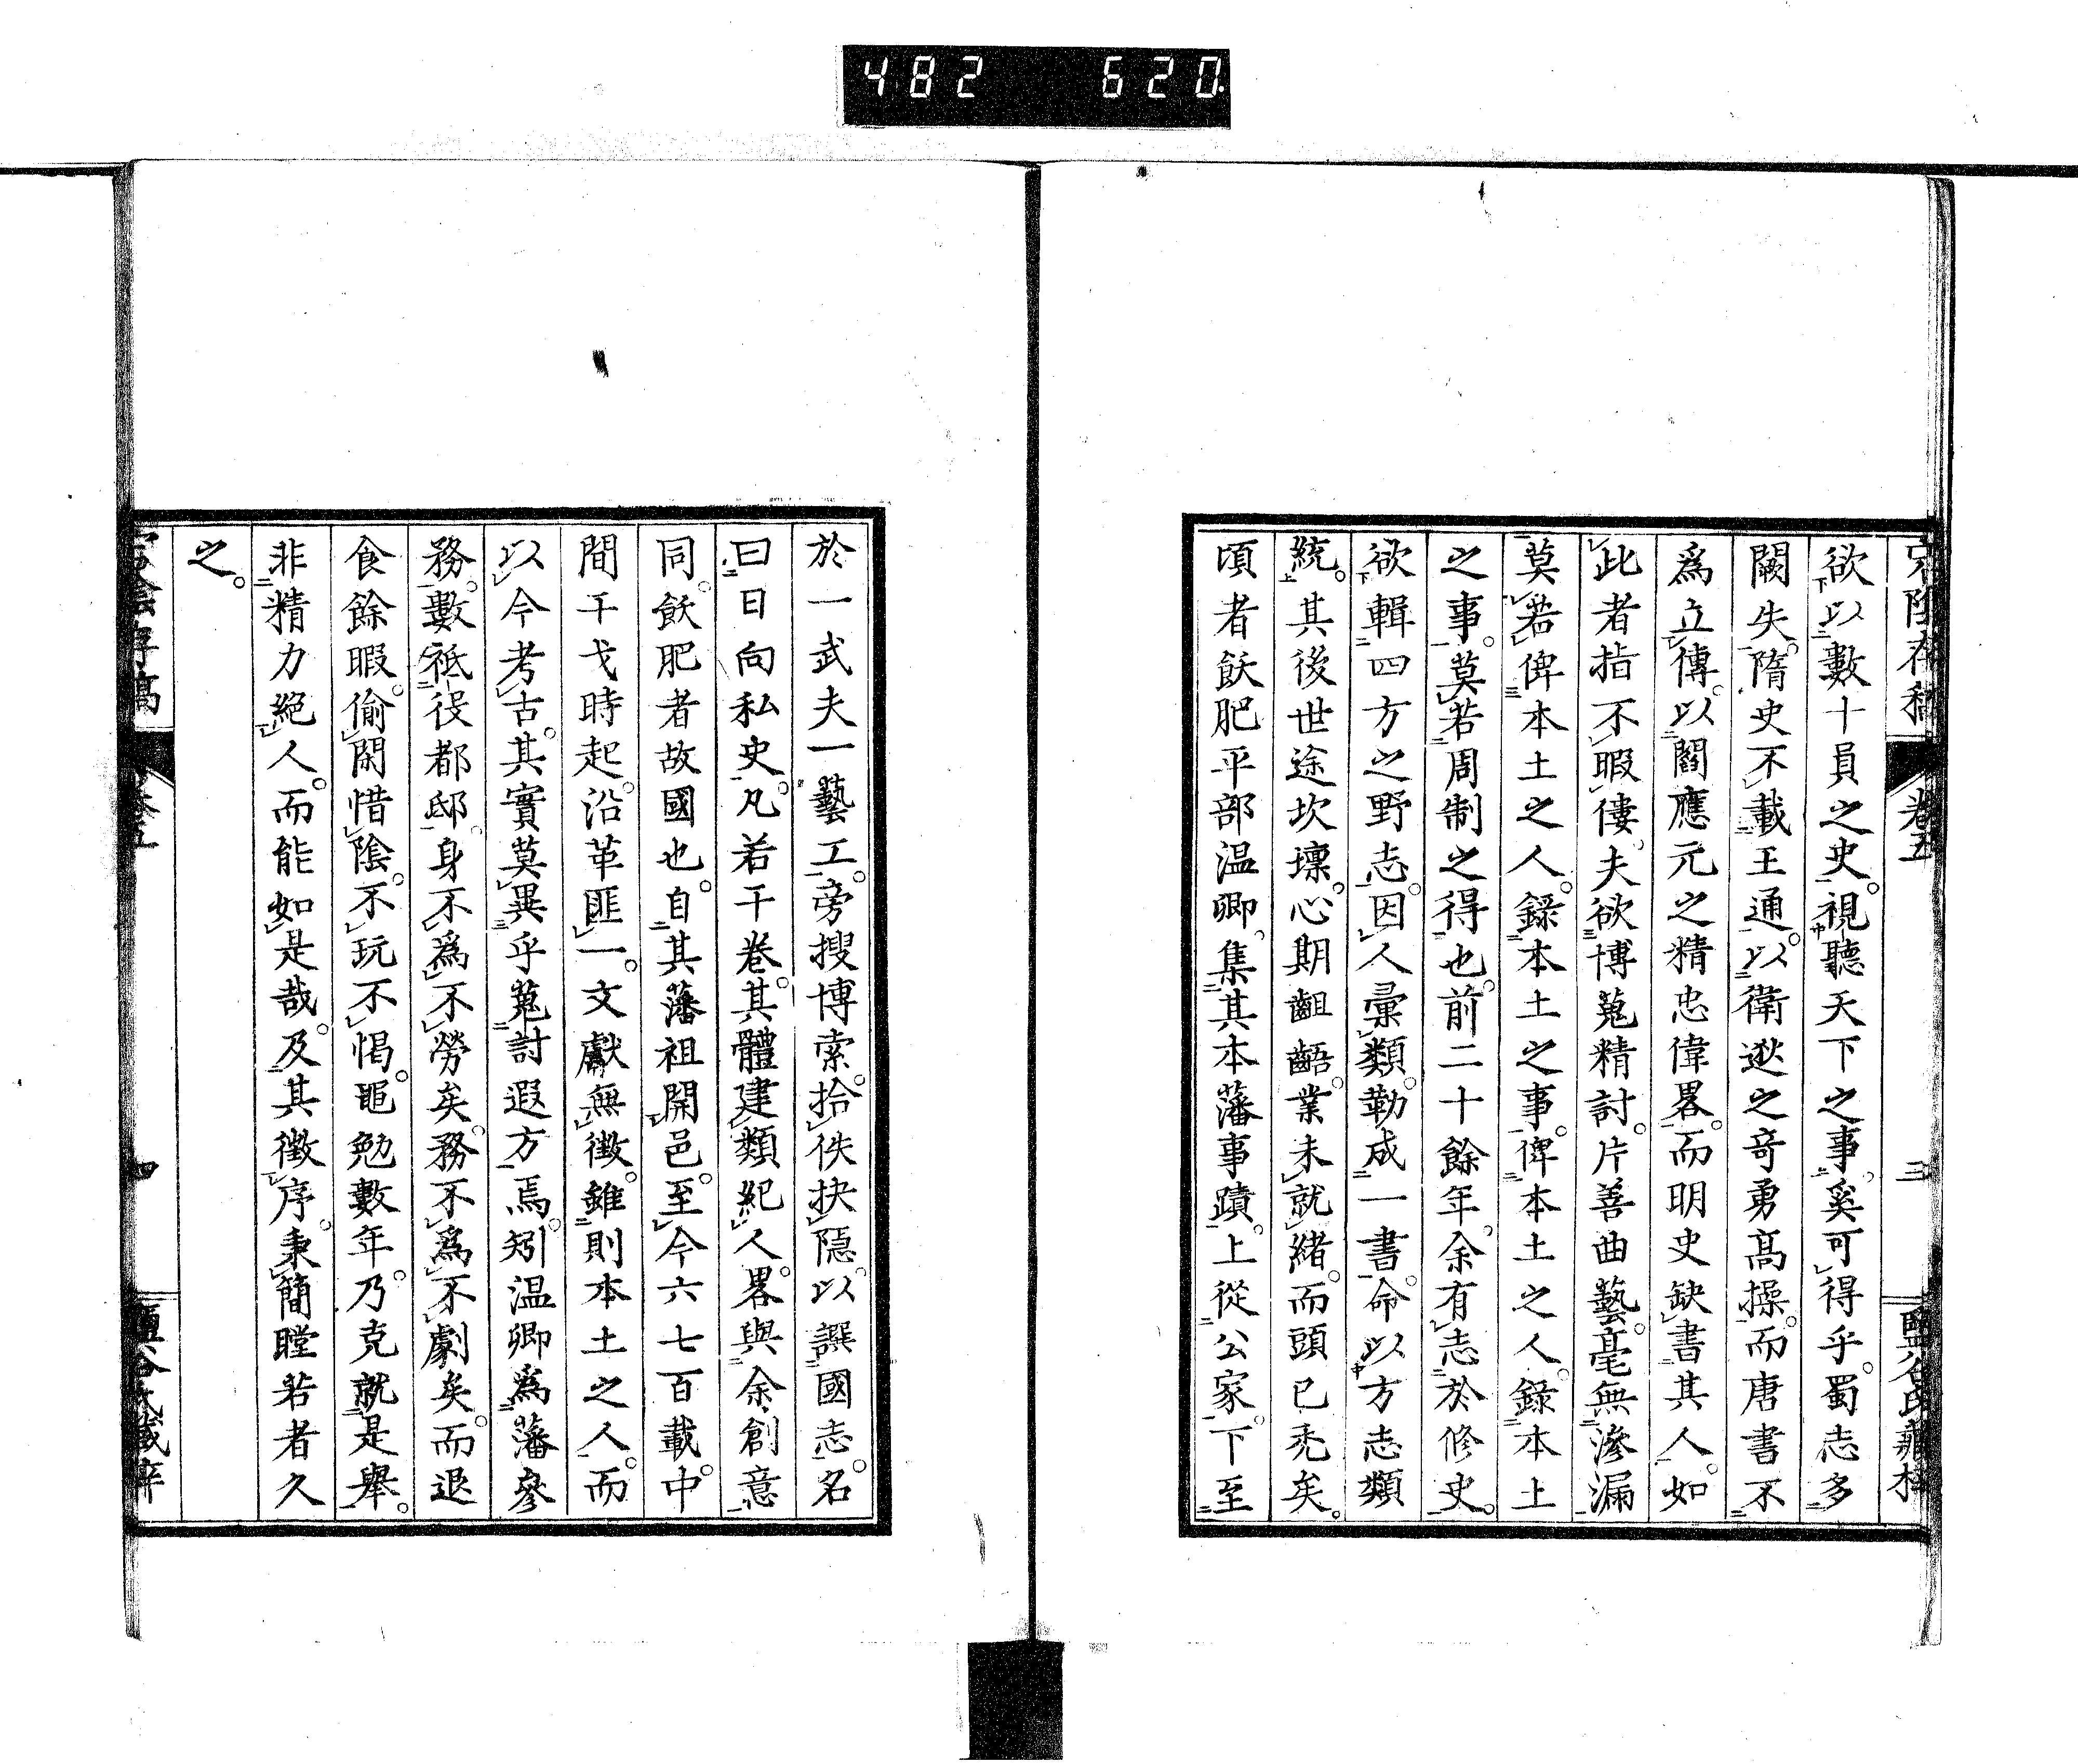 482 620
宕陰存稿 卷五 三 鹽谷氏藏梓
欲以數十員之史。視聽天下之事。奚可得乎。蜀志多
闕失。隋史不載王通。以衛逖之奇勇高操。而唐書不
爲立傳。以閻應元之精忠偉畧。而明史缺書其人。如
此者指不暇僂。夫欲博蒐精討。片善曲藝。毫無滲漏
莫若俾本土之人。錄本土之事。俾本土之人。錄本土
之事。莫若周制之得也。前二十餘年。余有志於修史。
欲輯四方之野志。因人彙類。勒成一書。命以方志類
統。其後世途坎壈。心期齟齬。業未就緒。而頭已禿矣。
頃者飫肥平部温卿。集其本藩事蹟。上從公家。下至
於一武夫一藝工。旁搜博索。拾佚抉隱。以譔國志。名
曰日向私史。凡若干卷。其體建類紀人。畧與余創意
同。飫肥者故國也。自其藩祖開邑。至今六七百載。中
間干戈時起。沿革匪一。文獻無徵。雖則本土之人。而
以今考古。其實莫異乎蒐討遐方焉。矧温卿爲藩參
務。數祗役都邸。身不爲不勞矣。務不爲不劇矣。而退
食餘暇。偷閑惜陰。不玩不愒。黽勉數年。乃克就是舉。
非精力絕人。而能如是哉。及其徵序。秉簡瞠若者久
之。
宕陰存稿 卷五 四 鹽谷氏藏梓